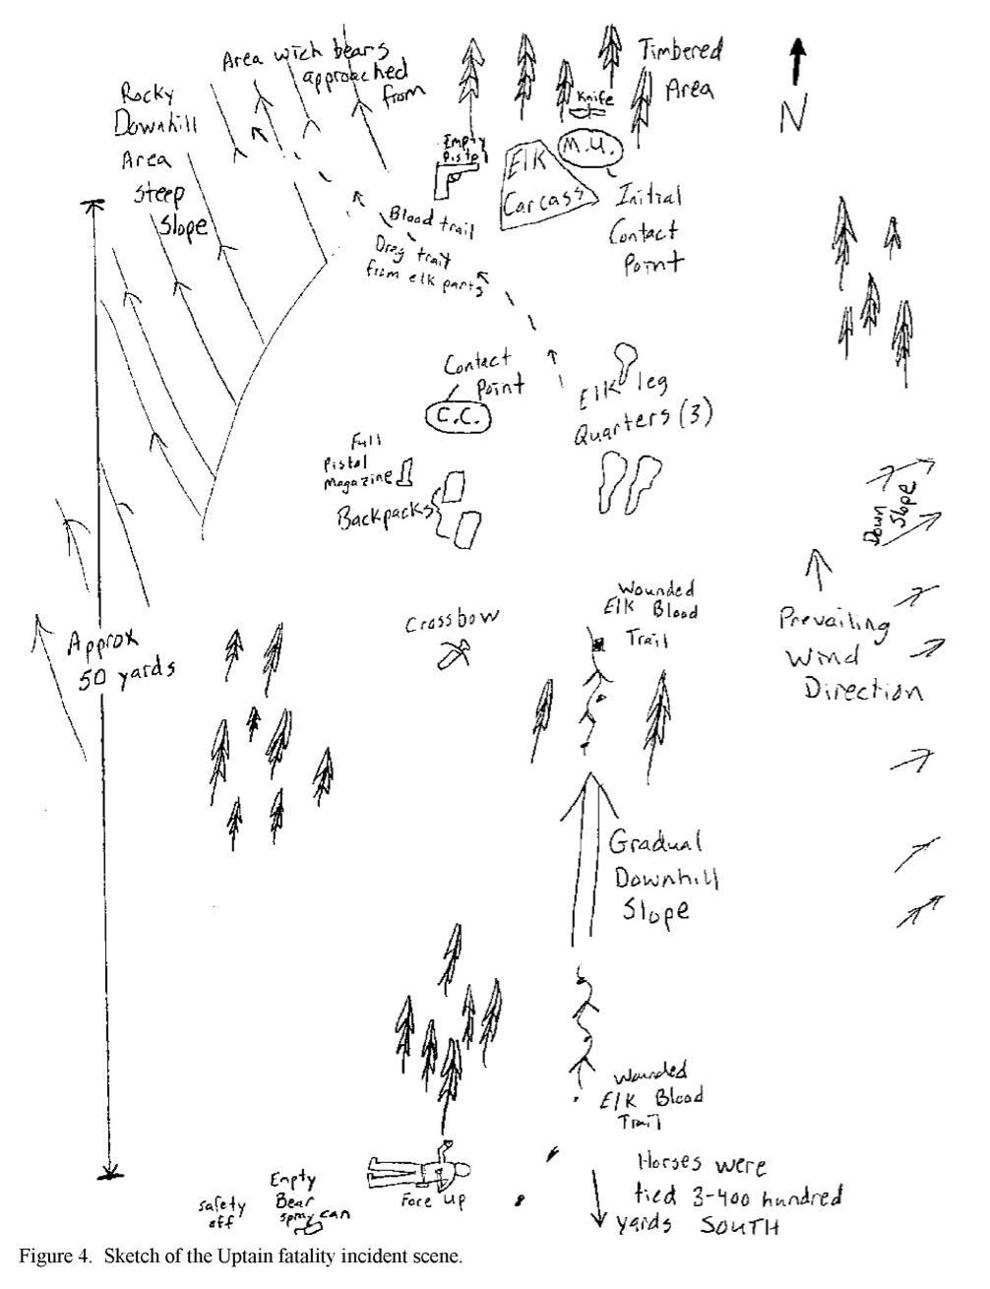 Area wich bears
approached
from
Rocky
Downhill
Area
Steep
Slope
Timbered
Area
Knife
N
Empty
Pistol
Elk
Carcass
M.U.
Initial
Contact
Point
Blood trail
Drag trail
from elk parts
Contact
Point
C.C.
Elk leg
Quarters (3)
Full
Pistol
Magazine
Backpacks
Down
Slope
Crossbow
Wounded
Elk Blood
Trail
Prevailing
Wind
Direction
Approx
50 yards
Gradual
Downhill
Slope
Wounded
Elk Blood
Trail
Horses were
tied 3-400 hundred
yards SOUTH
Empty
Bear
spray can
safety
off
Face Up
Figure 4. Sketch of the Uptain fatality incident scene.